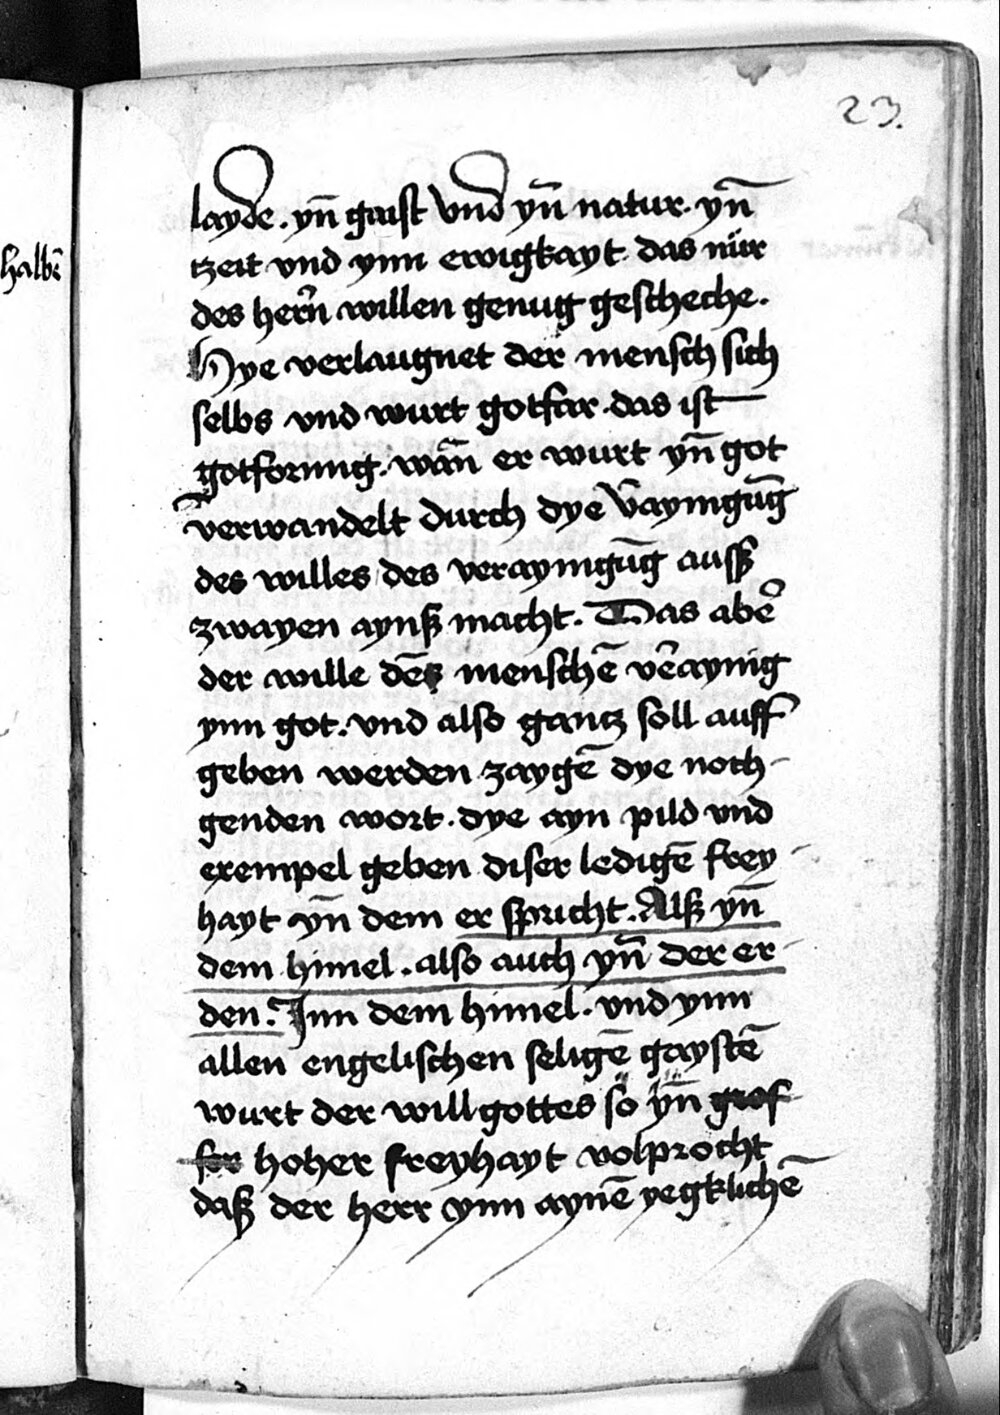 23.
halbē
layde. yn̄ gaist vnd yn̄ natur. yn̄
tzeit vnd ynn ewigkayt. das nür
des herñ willen genug gescheche.
Hye verlaugnet der mensch sich
selbs vnd wurt gotfar. das ist
gotformig. wān er wurt yn̄ got
verwandelt durch dye v̄aynigūg
des willes des veraynigūg auſʒ
zwayen aynß macht. Das aber
der wille des menschē v̄eraynig
ynn got. vnd also gantz soll auff
geben werden zaygē dye noch-
genden wort. dye ayn pild vnd
exempel geben diser ledigē frey-
hayt yn̄ dem er spricht. Alß yn̄
dem himel. also auch yn̄ der er-
den. Jnn dem himel. vnd ynn
allen engelischen seligē gaystē
wurt der will gottes so yn̄ gros-
ser hoher freyhayt volprocht
daß der herr ynn aynē yegklichē